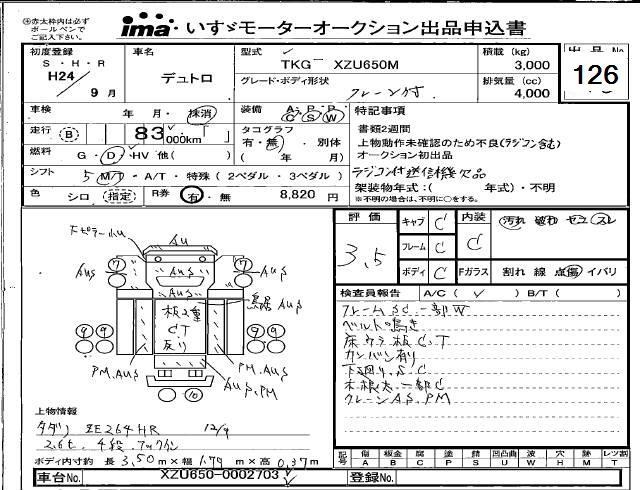 ㊟赤太枠内は必ず
ボールペンで
ご記入下さい。
ima いすゞモーターオークション出品申込書
初度登録 車名 型式 積載 (kg) 出品No.
S・H・R デュトロ TKG- XZU650M 3,000
H24 9月 グレード・ボディ形状 排気量 (cc) 126
クレーン付 4,000
車検 年 月・抹消 装備 A・P・P C S W 特記事項
走行 (B) 83,000km タコグラフ 書類2週間
有・無・別体 上物動作未確認のため不良(ラジコン含む)
燃料 G・D・HV 他( ) ( 年 月) オークション初出品
シフト 5 M/T・A/T・特殊(2ペダル・3ペダル) ラジコン付送信機欠品
架装物年式:( 年式)・不明
※不明の場合は、不明に○をする。
色 シロ (指定) R券 有・無 8,820 円
評価 キャブ C 内装 汚れ 破れ セコ スレ
3.5 フレーム C C
ボディ C Fガラス 割れ 線 点傷 イバリ
検査員報告 A/C( ✓ ) B/T( )
フレームSC一部W
ベルト鳴き
床ウラ板C,T
カンバン有り
下廻りS.C
木根太一部C
クレーンAS,PM
AU
AUS
AUS
AUS
AUS
7 7
板2重
CT
反り
鳥居AUS
9 9 9 9
PM.AUS
PM.AUS
AUS,PM
10
上物情報
タダノ ZE264HR 12/9
2.6t. 4段.フックイン
ボディ内寸約 長 3.50m×幅 1.79m×高 0.37m
車台No. XZU650-0002703 登録No.
記号 傷 板金 腐 塗 錆 凹凸曲 波 穴 跡 レツ割
A B C P S U W H M T